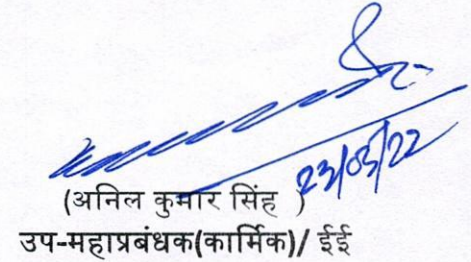 23/05/22
(अनिल कुमार सिंह )
उप-महाप्रबंधक(कार्मिक)/ ईई